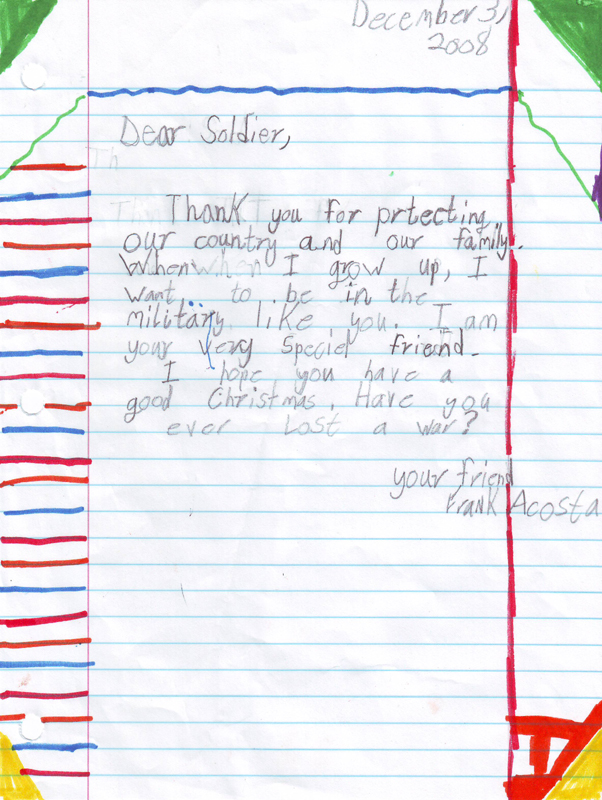 December 3,
2008
Dear Soldier,
Th
Than Thank T you for prtecting
our country and our family.
When when I grow up, I
want to be in the
military like you. I am
your very Speciel friend.
I hope you have a
good Christmas. Have you
ever Lost a war?
your friend
Frank Acosta